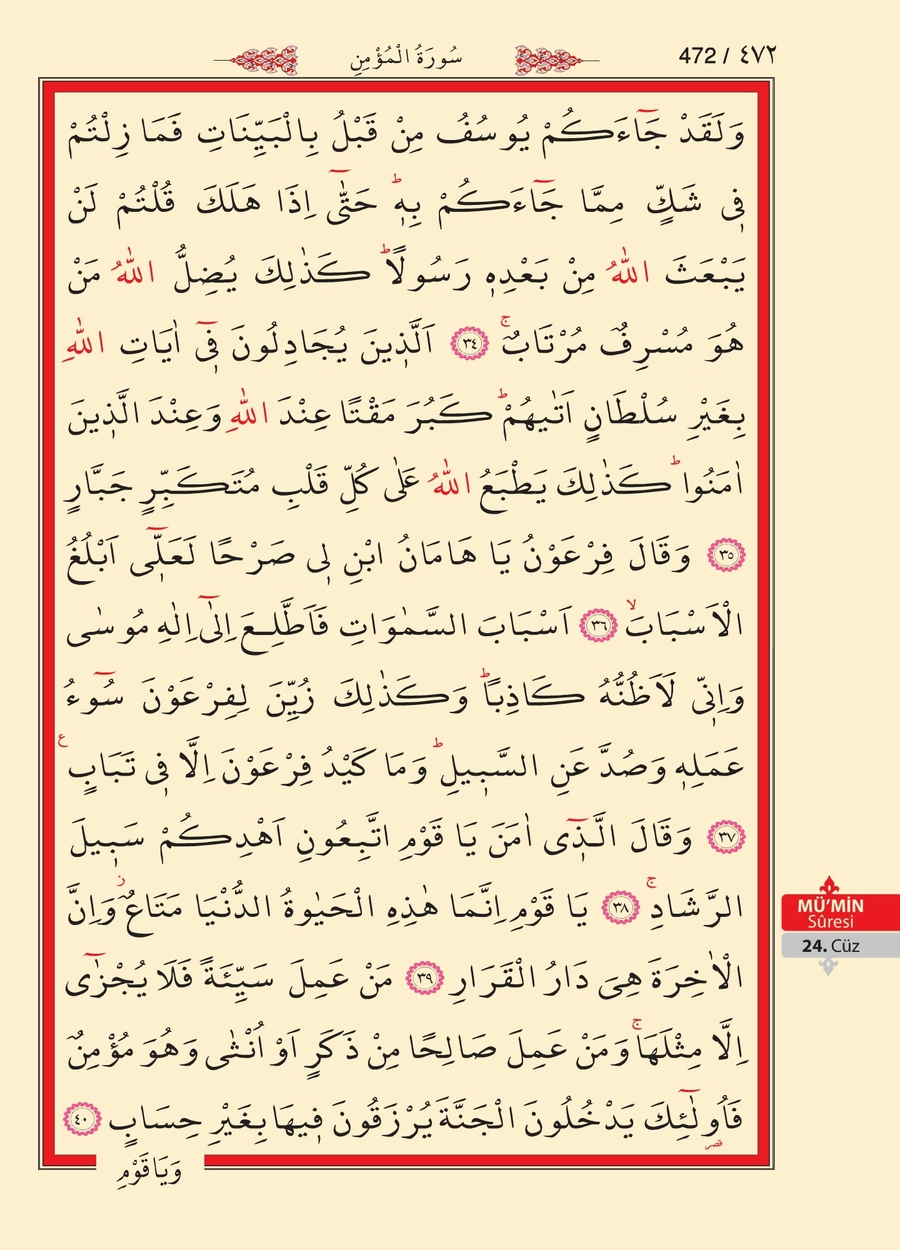 472 / ٤٧٢
سُورَةُ الْمُؤْمِنِ
وَلَقَدْ جَٓاءَكُمْ يُوسُفُ مِنْ قَبْلُ بِالْبَيِّنَاتِ فَمَا زِلْتُمْ
ف۪ي شَكٍّ مِمَّا جَٓاءَكُمْ بِه۪ۜ حَتّٰٓى اِذَا هَلَكَ قُلْتُمْ لَنْ
يَبْعَثَ اللّٰهُ مِنْ بَعْدِه۪ رَسُولًاۜ كَذٰلِكَ يُضِلُّ اللّٰهُ مَنْ
هُوَ مُسْرِفٌ مُرْتَابٌۚ ﴿٣٤﴾ اَلَّذ۪ينَ يُجَادِلُونَ ف۪ٓي اٰيَاتِ اللّٰهِ
بِغَيْرِ سُلْطَانٍ اَتٰيهُمْۜ كَبُرَ مَقْتًا عِنْدَ اللّٰهِ وَعِنْدَ الَّذ۪ينَ
اٰمَنُواۜ كَذٰلِكَ يَطْبَعُ اللّٰهُ عَلٰى كُلِّ قَلْبِ مُتَكَبِّرٍ جَبَّارٍ
﴿٣٥﴾ وَقَالَ فِرْعَوْنُ يَا هَامَانُ ابْنِ ل۪ي صَرْحًا لَعَلّ۪ٓي اَبْلُغُ
الْاَسْبَابَۙ ﴿٣٦﴾ اَسْبَابَ السَّمٰوَاتِ فَاَطَّلِعَ اِلٰٓى اِلٰهِ مُوسٰى
وَاِنّ۪ي لَاَظُنُّهُ كَاذِبًاۜ وَكَذٰلِكَ زُيِّنَ لِفِرْعَوْنَ سُٓوءُ
عَمَلِه۪ وَصُدَّ عَنِ السَّب۪يلِۜ وَمَا كَيْدُ فِرْعَوْنَ اِلَّا ف۪ي تَبَابٍ ع
﴿٣٧﴾ وَقَالَ الَّذ۪ٓي اٰمَنَ يَا قَوْمِ اتَّبِعُونِ اَهْدِكُمْ سَب۪يلَ
الرَّشَادِۚ ﴿٣٨﴾ يَا قَوْمِ اِنَّمَا هٰذِهِ الْحَيٰوةُ الدُّنْيَا مَتَاعٌۘ وَاِنَّ
الْاٰخِرَةَ هِيَ دَارُ الْقَرَارِ ﴿٣٩﴾ مَنْ عَمِلَ سَيِّئَةً فَلَا يُجْزٰٓى
اِلَّا مِثْلَهَاۚ وَمَنْ عَمِلَ صَالِحًا مِنْ ذَكَرٍ اَوْ اُنْثٰى وَهُوَ مُؤْمِنٌ
فَاُو۬لٰٓئِكَ يَدْخُلُونَ الْجَنَّةَ يُرْزَقُونَ ف۪يهَا بِغَيْرِ حِسَابٍ ﴿٤٠﴾
قصر
وَيَا قَوْمِ
MÜ’MİN
Sûresi
24. Cüz